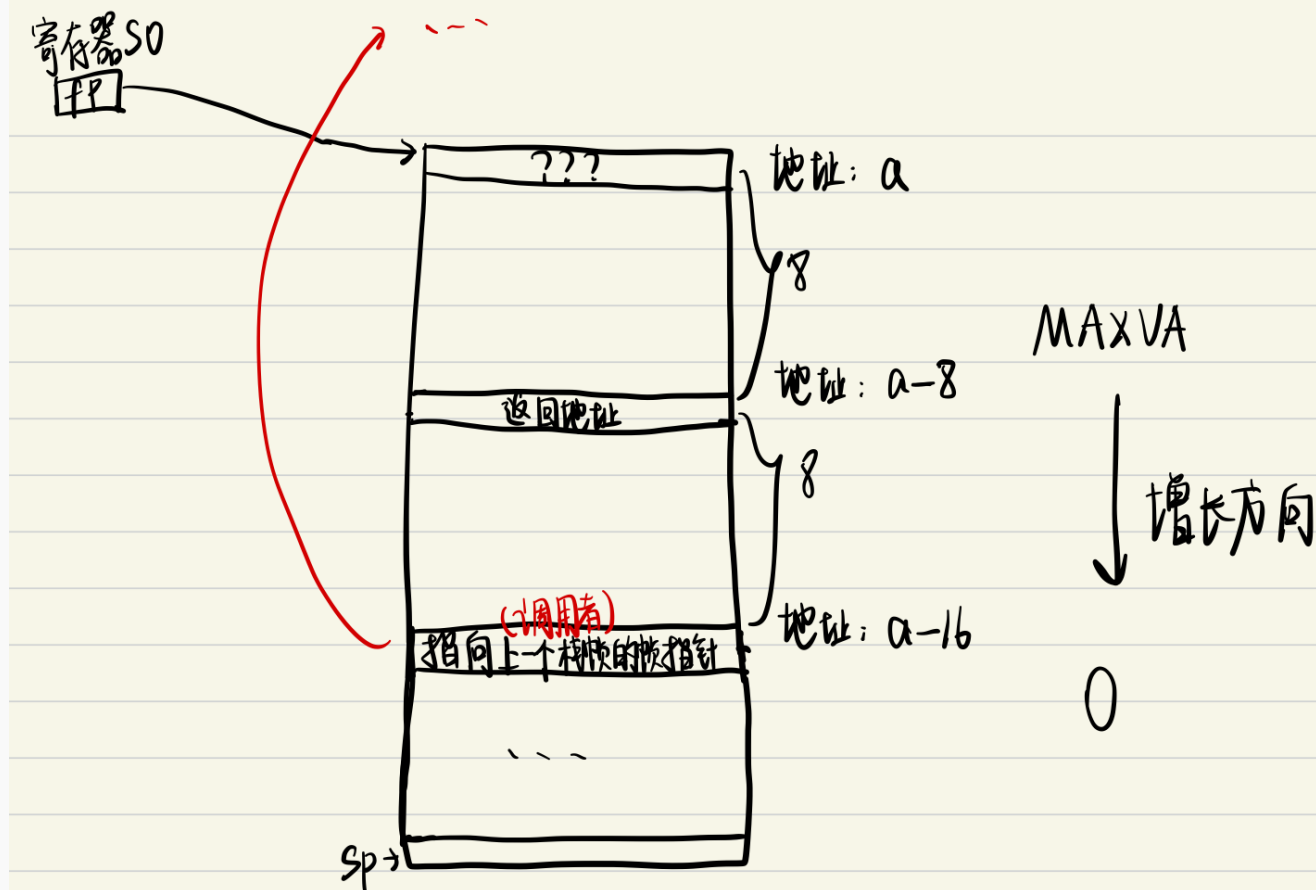 寄存器S0
fP
???
地址: a
8
MAXVA
地址: a-8
返回地址
8
增长方向
(调用者)
指向上一个栈帧的帧指针
地址: a-16
0
Sp